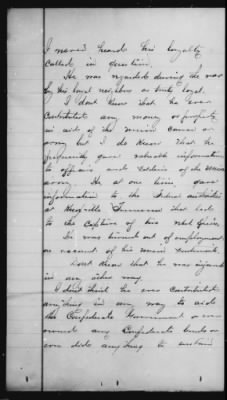 I never heard his loyalty
called in question.
He was regarded during the war
by his loyal neighbors as truly loyal.
I dont know that he ever
contributed any money or property
in aid of the Union cause or
army but I do know that he
frequently gave valuable information
to officers and soldiers of the Union
army. He at one time gave
information to the Federal authorities
at Tennessee that led
to the capture of two rebel spies.
He was turned out of employment
on account of his union sentiments.
Dont know that he was injured
in any other way.
I dont think he ever contributed
anything in any way to aid
the Confederate Government or ever
owned any Confederate bonds or
ever did anything to sustain